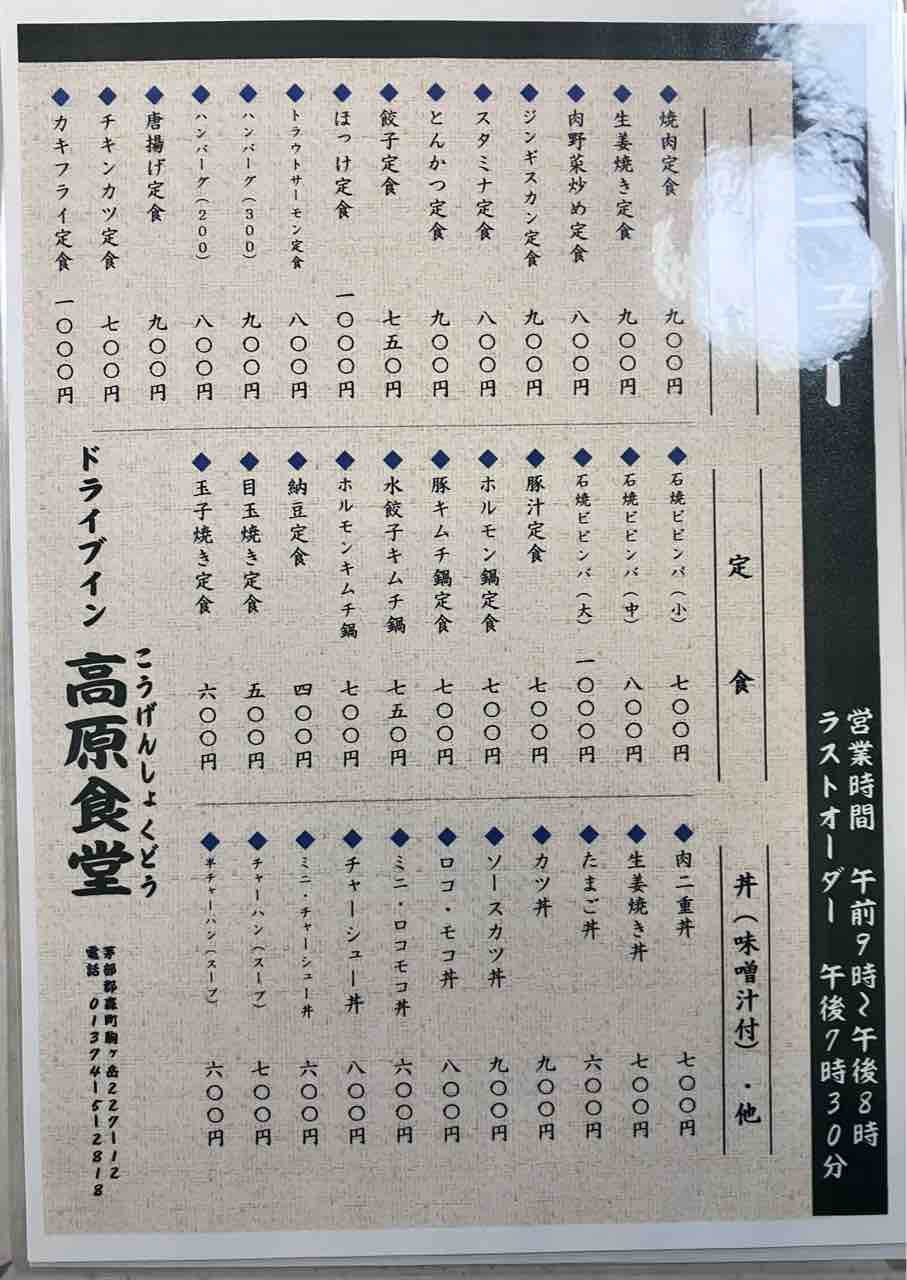 ニュー
営業時間 午前9時〜午後8時
ラストオーダー 午後7時30分
定食
焼肉定食 九〇〇円
生姜焼き定食 九〇〇円
肉野菜炒め定食 八〇〇円
ジンギスカン定食 九〇〇円
スタミナ定食 八〇〇円
とんかつ定食 九〇〇円
餃子定食 七五〇円
ほっけ定食 一〇〇〇円
トラウトサーモン定食 八〇〇円
ハンバーグ(300) 九〇〇円
ハンバーグ(200) 八〇〇円
唐揚げ定食 九〇〇円
チキンカツ定食 七〇〇円
カキフライ定食 一〇〇〇円
定食
石焼ビビンバ(小) 七〇〇円
石焼ビビンバ(中) 八〇〇円
石焼ビビンバ(大) 一〇〇〇円
豚汁定食 七〇〇円
ホルモン鍋定食 七〇〇円
豚キムチ鍋定食 七〇〇円
水餃子キムチ鍋 七五〇円
ホルモンキムチ鍋 七〇〇円
納豆定食 四〇〇円
目玉焼き定食 五〇〇円
玉子焼き定食 六〇〇円
丼(味噌汁付)・他
肉二重丼 七〇〇円
生姜焼き丼 七〇〇円
たまご丼 六〇〇円
カツ丼 九〇〇円
ソースカツ丼 九〇〇円
ロコ・モコ丼 八〇〇円
ミニ・ロコモコ丼 六〇〇円
チャーシュー丼 八〇〇円
ミニ・チャーシュー丼 六〇〇円
チャーハン(スープ) 七〇〇円
半チャーハン(スープ) 六〇〇円
ドライブイン 高原食堂
こうげんしょくどう
茅部郡森町駒ヶ岳227-12
電話 01374-5-2818